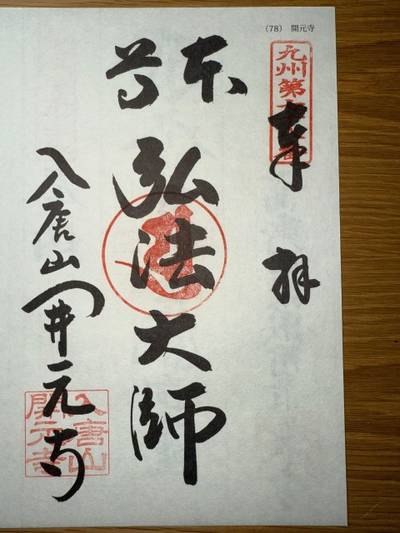 (78) 開元寺
奉拝
本尊
弘法大師
入唐山開元寺
九州第
入唐山
開元寺